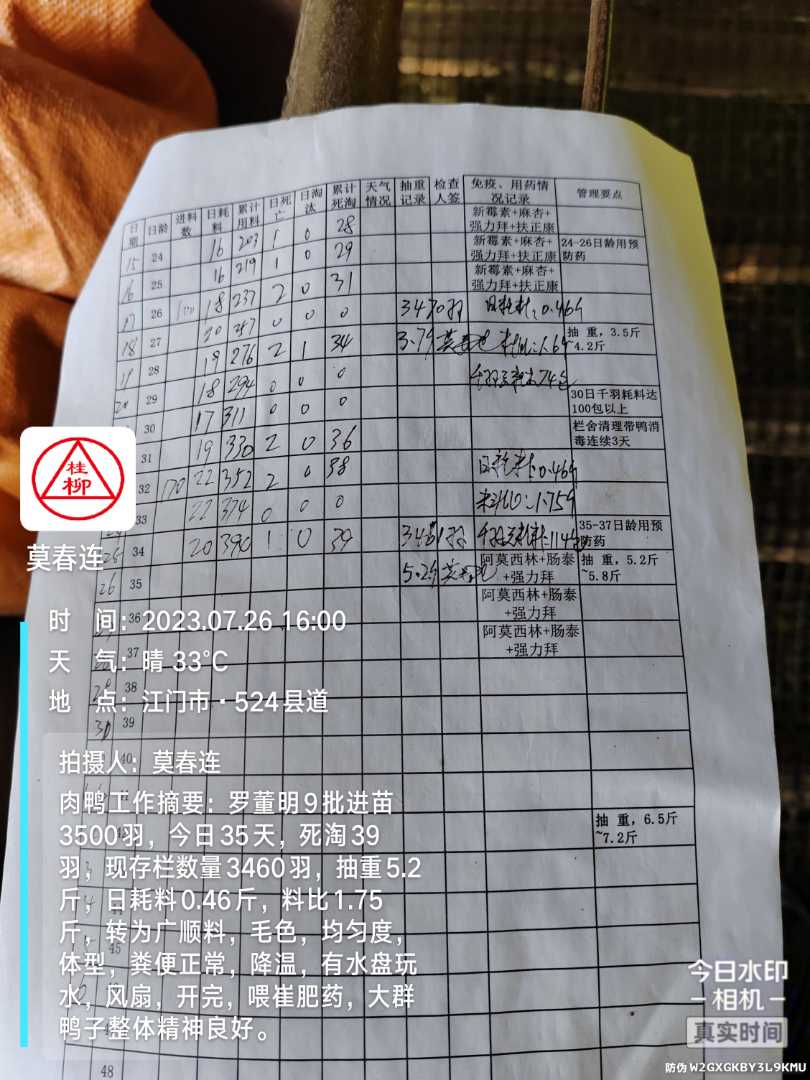 日期 日龄 进料数 日耗料 累计用料 日死亡 日淘汰 累计死淘 天气情况 抽重记录 检查人签 免疫、用药情况记录 管理要点
15 24 16 203 1 0 28 新霉素+麻杏+强力拜+扶正康 24-26日龄用预防药
16 25 16 219 1 0 29 新霉素+麻杏+强力拜+扶正康
17 26 100 18 237 2 0 31 新霉素+麻杏+强力拜+扶正康
18 27 20 257 0 0 0 3470羽 日耗料:0.46斤 抽 重,3.5斤 4.2斤
19 28 19 276 2 1 34 3.7斤
20 29 18 294 0 0 0 30日千羽耗料达100包以上
30 17 311 0 0 0 栏舍清理带鸭消毒连续3天
31 19 330 2 0 36
32 170 22 352 2 0 38 日耗料:0.46斤
33 22 374 0 0 0 料比:1.75斤
25 34 20 390 1 0 39 3461羽 35-37日龄用预防药
26 35 5.2斤 阿莫西林+肠泰+强力拜 抽 重,5.2斤~5.8斤
36 阿莫西林+肠泰+强力拜
37 阿莫西林+肠泰+强力拜
38
30 39
40
抽 重,6.5斤~7.2斤
45
48
桂柳
莫春连
时 间:2023.07.26 16:00
天 气:晴 33℃
地 点:江门市·524县道
拍摄人:莫春连
肉鸭工作摘要:罗董明9批进苗
3500羽,今日35天,死淘39
羽,现存栏数量3460羽,抽重5.2
斤,日耗料0.46斤,料比1.75
斤,转为广顺料,毛色,均匀度,
体型,粪便正常,降温,有水盘玩
水,风扇,开完,喂崔肥药,大群
鸭子整体精神良好。
今日水印
相机
真实时间
防伪 W2GXGKBY3L9KMU